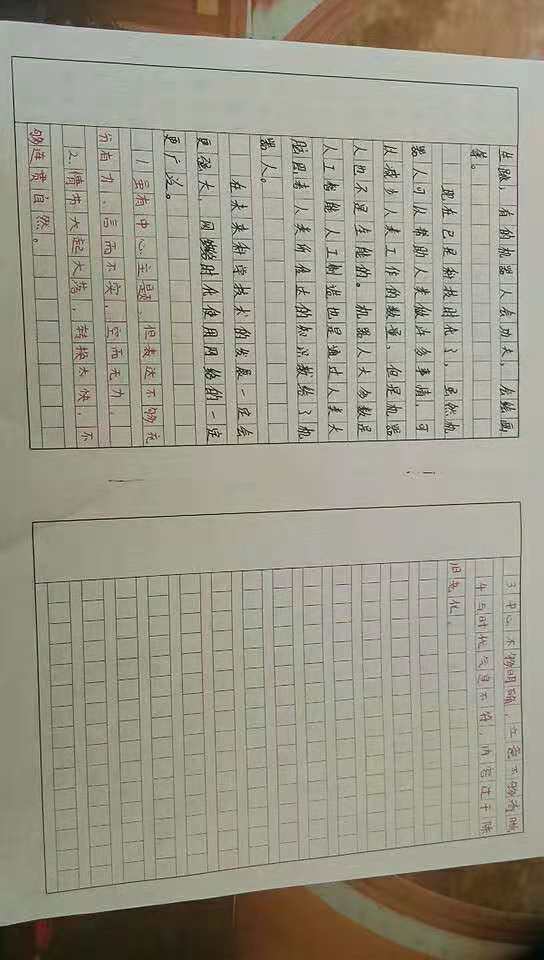 生跳，有的机器人会功夫，会绘画
等。
现在已是科技时代了，虽然机
器人可以帮助人类做许多事情，可
以减少人类工作的数量，但是机器
人也不是全能的。机器人大多数是
人工智能人工制造也是通过人类大
脑因着人类所传达的知识教给了机
器人。
在未来科学技术的发展一定会
更强大，网络时代使用网络的一定
更广泛。
1 虽有中心主题，但表达不够充
分有力，言而不实，空而无力，
2、情节大起大落，转换太快，不
够连贯自然。
3 中心不够明确，立意不够有
4 与时代气息不符，内容过于陈
旧老化。